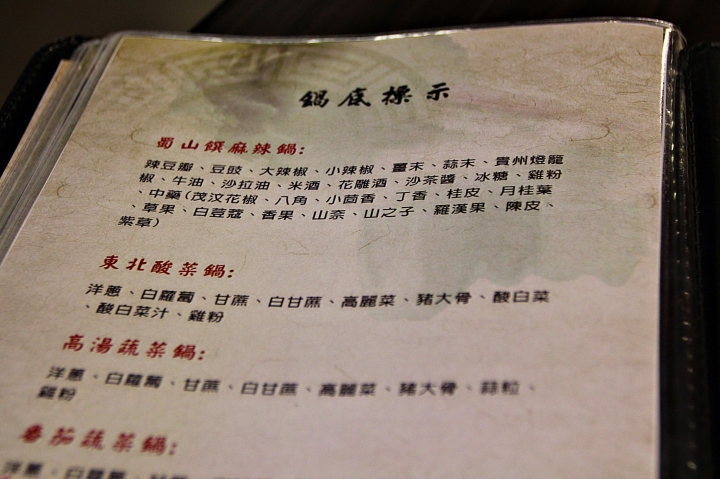 鍋底標示
蜀山饌麻辣鍋:
辣豆瓣、豆豉、大辣椒、小辣椒、薑末、蒜末、貴州燈籠
椒、牛油、沙拉油、米酒、花雕酒、沙茶醬、冰糖、雞粉
、中藥(茂汶花椒、八角、小茴香、丁香、桂皮、月桂葉
、草果、白荳蔻、香果、山奈、山之子、羅漢果、陳皮、
紫草)
東北酸菜鍋:
洋蔥、白蘿蔔、甘蔗、白甘蔗、高麗菜、豬大骨、酸白菜
、酸白菜汁、雞粉
高湯蔬菜鍋:
洋蔥、白蘿蔔、甘蔗、白甘蔗、高麗菜、豬大骨、蒜粒、
雞粉
番茄蔬菜鍋:
洋蔥、白蘿蔔、